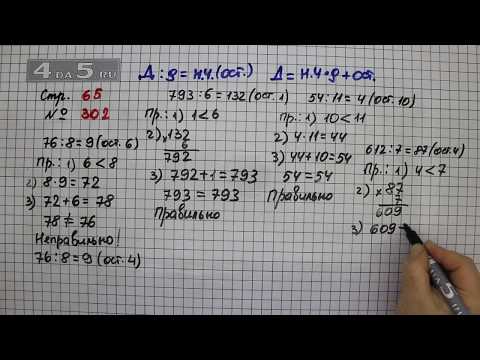 4 DA 5 RU
Д : д = н.ч. (ост.)
Д = н.ч · д + ост.
Стр. 65
№ 302
76 : 8 = 9 (ост. 6)
Пр.: 1) 6 < 8
2) 8 · 9 = 72
3) 72 + 6 = 78
78 ≠ 76
Неправильно!
76 : 8 = 9 (ост. 4)
793 : 6 = 132 (ост. 1)
Пр.: 1) 1 < 6
2) × 132
6
792
3) 792 + 1 = 793
793 = 793
Правильно
54 : 11 = 4 (ост. 10)
Пр.: 1) 10 < 11
2) 4 · 11 = 44
3) 44 + 10 = 54
54 = 54
Правильно
612 : 7 = 87 (ост. 4)
Пр.: 1) 4 < 7
2) × 87
7
609
3) 609 +